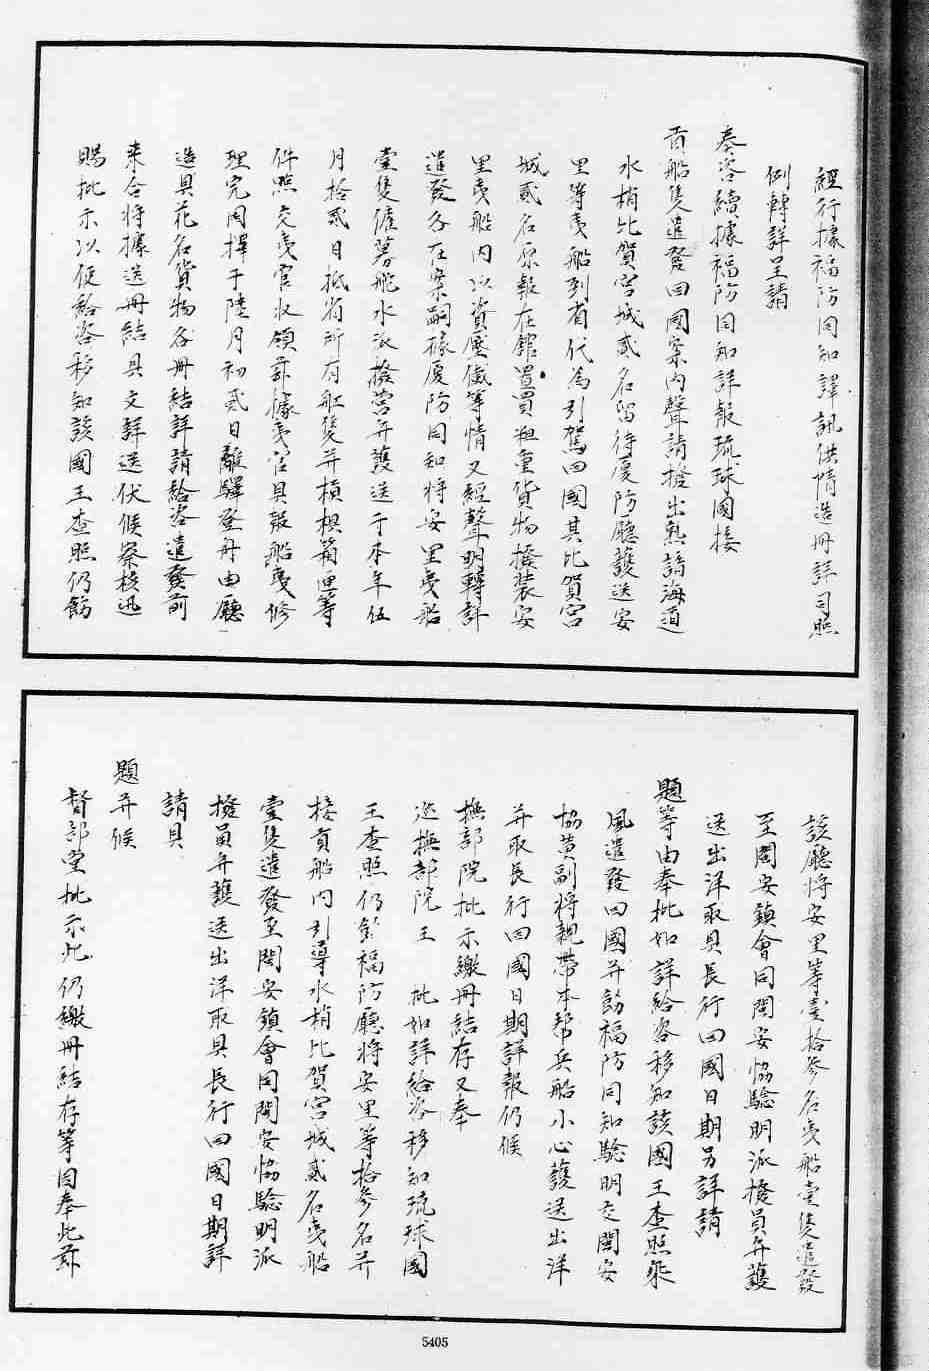 經行據福防同知譯訊供情造冊詳司照
例轉詳呈請
奉咨續據福防同知詳報琉球國接
貢船隻遣發回國案內聲請撥出熟諳海道
水梢比賀宮城貳名留待廈防廳護送安
里等夷船到省代為引駕回國其比賀宮
城貳名原報在館置買粗重貨物撥裝安
里夷船內以資壓儎等情又經聲明轉詳
遣發各在案嗣據廈防同知將安里夷船
壹隻僱募舵水派撥營弁護送于本年伍
月拾貳日抵省所有舡隻并槓椇箱匣等
件照交夷官收領茲據夷官具報船隻修
理完固擇于陸月初貳日離驛登舟由廳
造具花名貨物各冊結詳請給咨遣發前
來合將據送冊結具文詳送伏候察核迅
賜批示以便給咨移知該國王查照仍飭
該廳將安里等壹拾參名夷船壹隻遣發
至閩安鎮會同閩安協驗明派撥員弁護
送出洋取具長行回國日期另詳請
題等由奉批如詳給咨移知該國王查照乘
風遣發回國并飭福防同知驗明交閩安
協黃副將親帶本幫兵船小心護送出洋
并取長行回國日期詳報仍候
撫部院批示繳冊結存又奉
巡撫部院王　批如詳給咨移知琉球國
王查照仍飭福防廳將安里等拾參名并
接貢船內引導水梢比賀宮城貳名夷船
壹隻遣發至閩安鎮會同閩安協驗明派
撥員弁護送出洋取具長行回國日期詳
請具
題并候
督部堂批示此仍繳冊結存等因奉此茲
5405